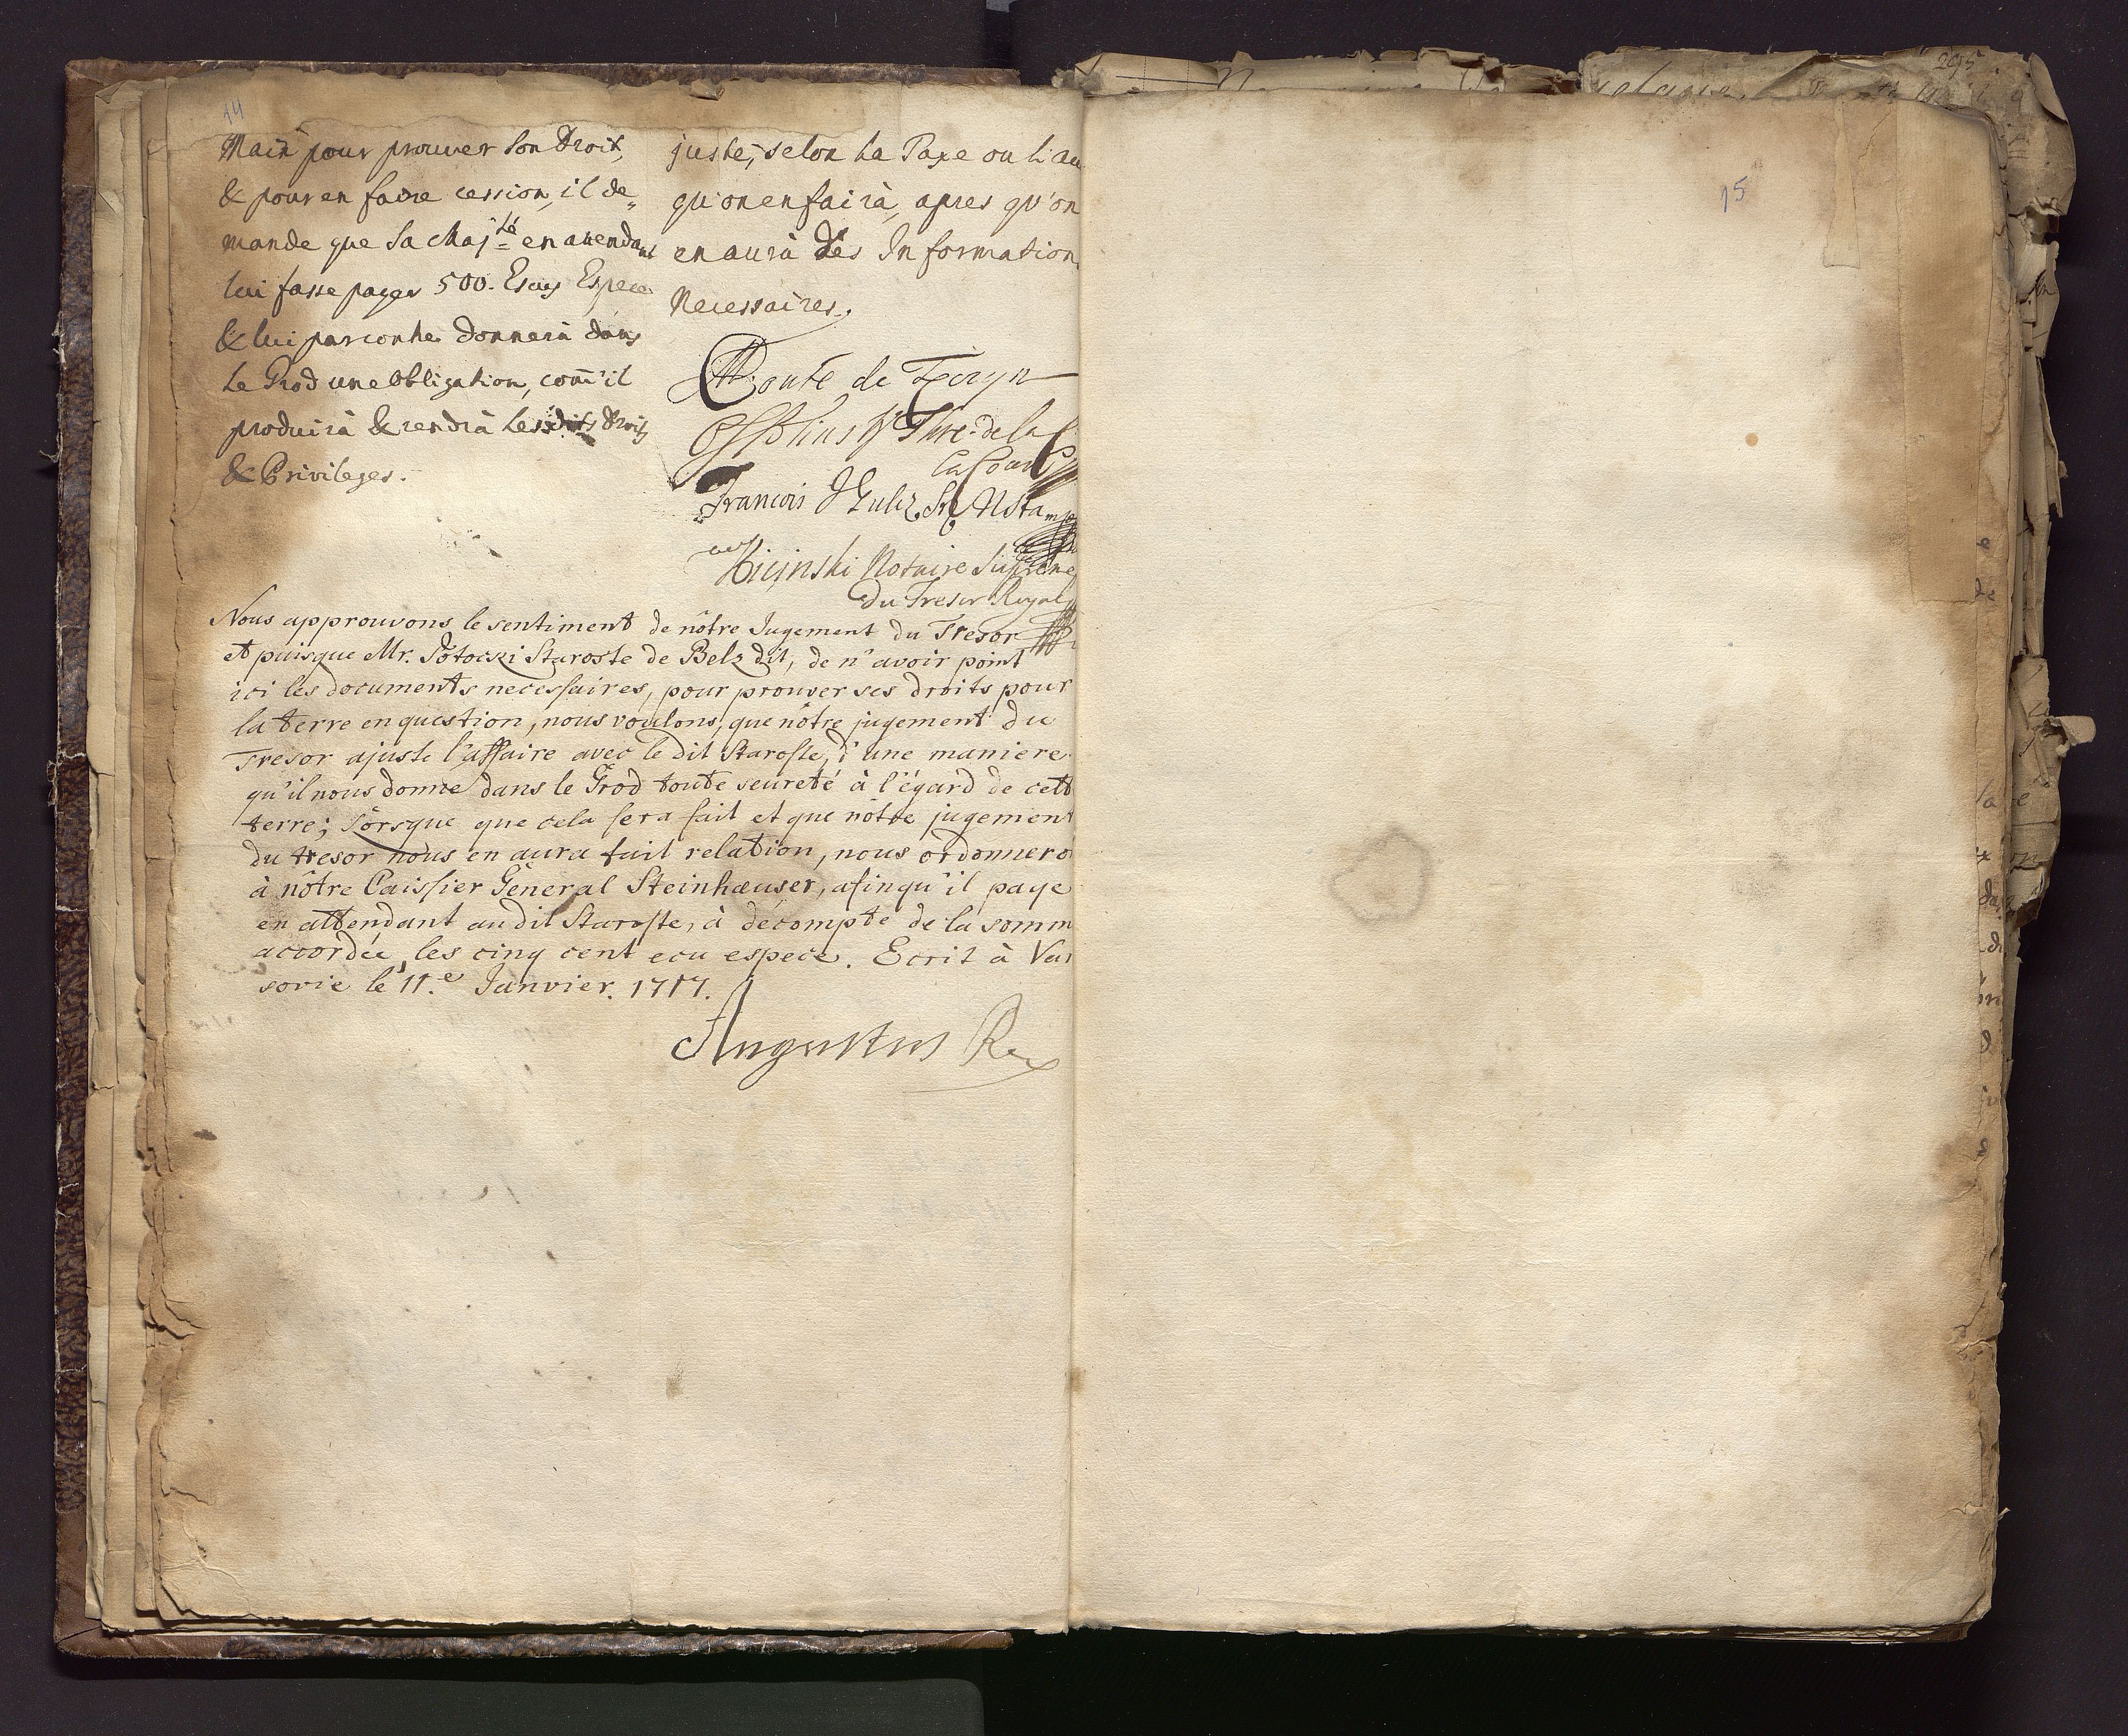 14
Main pour prouver son Droit,
& pour en faire cession, il de„
mande que Sa Majté en attendant
lui fasse payer 500. Ecus Espece
& lui parcontre donnerà dans
le Grod une obligation, com̄'il
produirà & rendrà les dits Droits
& Privileges.
juste, selon la Taxe ou
qu'on en fairà, apres qu'on
en aurà des Information
Necessaires.
Conte de
de la
La Cour
Francois
Notaire Supreme
du Tresor Royal
Nous approuvons le sentiment de nôtre Jugement du Tresor
et puisque Mr. Potocki Staroste de Belz dit, de n'avoir point
ici les documents necessaires, pour prouver ses droits pour
la terre en question, nous voulons, que nôtre jugement du
Tresor ajuste l'affaire avec le dit Staroste, d'une maniere
qu'il nous donne dans le Grod toute seureté à l'égard de cett
terre; Lorsque que cela sera fait et que nôtre jugement
du tresor nous en aura fait relation, nous ordonnero
à nôtre Caissier Géneral Steinhæuser, afinqu'il paye
en attendant au dit Staroste, à décompte de la somm
accordée, les cinq cent ecu espece. Ecrit à Var
sovie le 11.e Janvier. 1717.
Augustus Rex
295
15